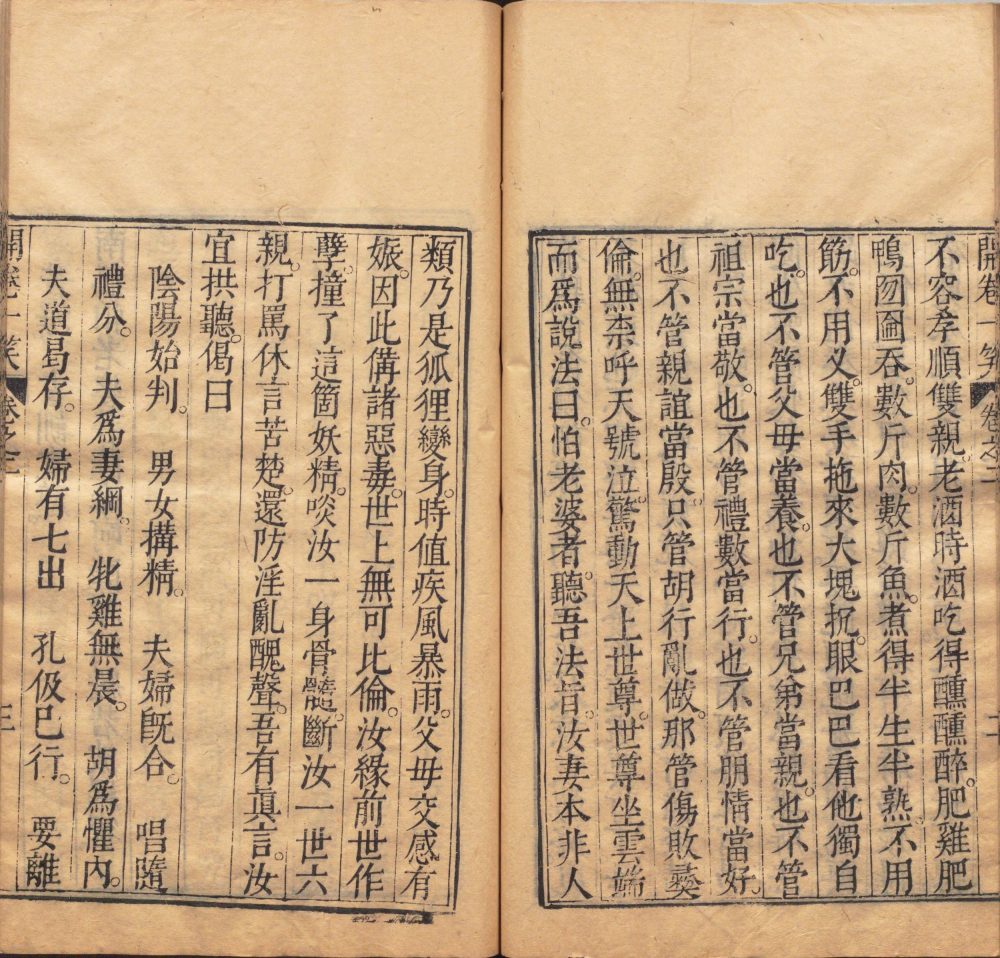 開卷一笑 卷之二 二
不容孝順雙親。老酒時酒吃得醺醺醉。肥雞肥
鴨囫圇吞。數斤肉。數斤魚。煮得半生半熟。不用
筯。不用叉。雙手拖來大塊抳。眼巴巴看他獨自
吃。也不管父毋當養。也不管兄弟當親。也不管
祖宗當敬。也不管禮數當行。也不管朋情當好。
也不管親誼當殷。只管胡行亂做。那管傷敗彝
倫。無柰呼天號泣。驚動天上世尊。世尊坐雲端
而爲說法曰。怕老婆者聽吾法旨。汝妻本非人
類。乃是狐狸變身。時値疾風暴雨。父毋交感有
娠。因此備諸惡毒。世上無可比倫。汝緣前世作
孽。撞了這箇妖精。啖汝一身骨髓。斷汝一世六
親。打罵休言苦楚。還防淫亂醜聲。吾有眞言。汝
宜拱聽。偈曰
陰陽始判。 男女搆精。 夫婦旣合。 唱隨
禮分。 夫爲妻綱。 牝雞無晨。 胡爲懼內。
夫道曷存。 婦有七出 孔伋已行。 要離
開卷一笑 卷之二 三